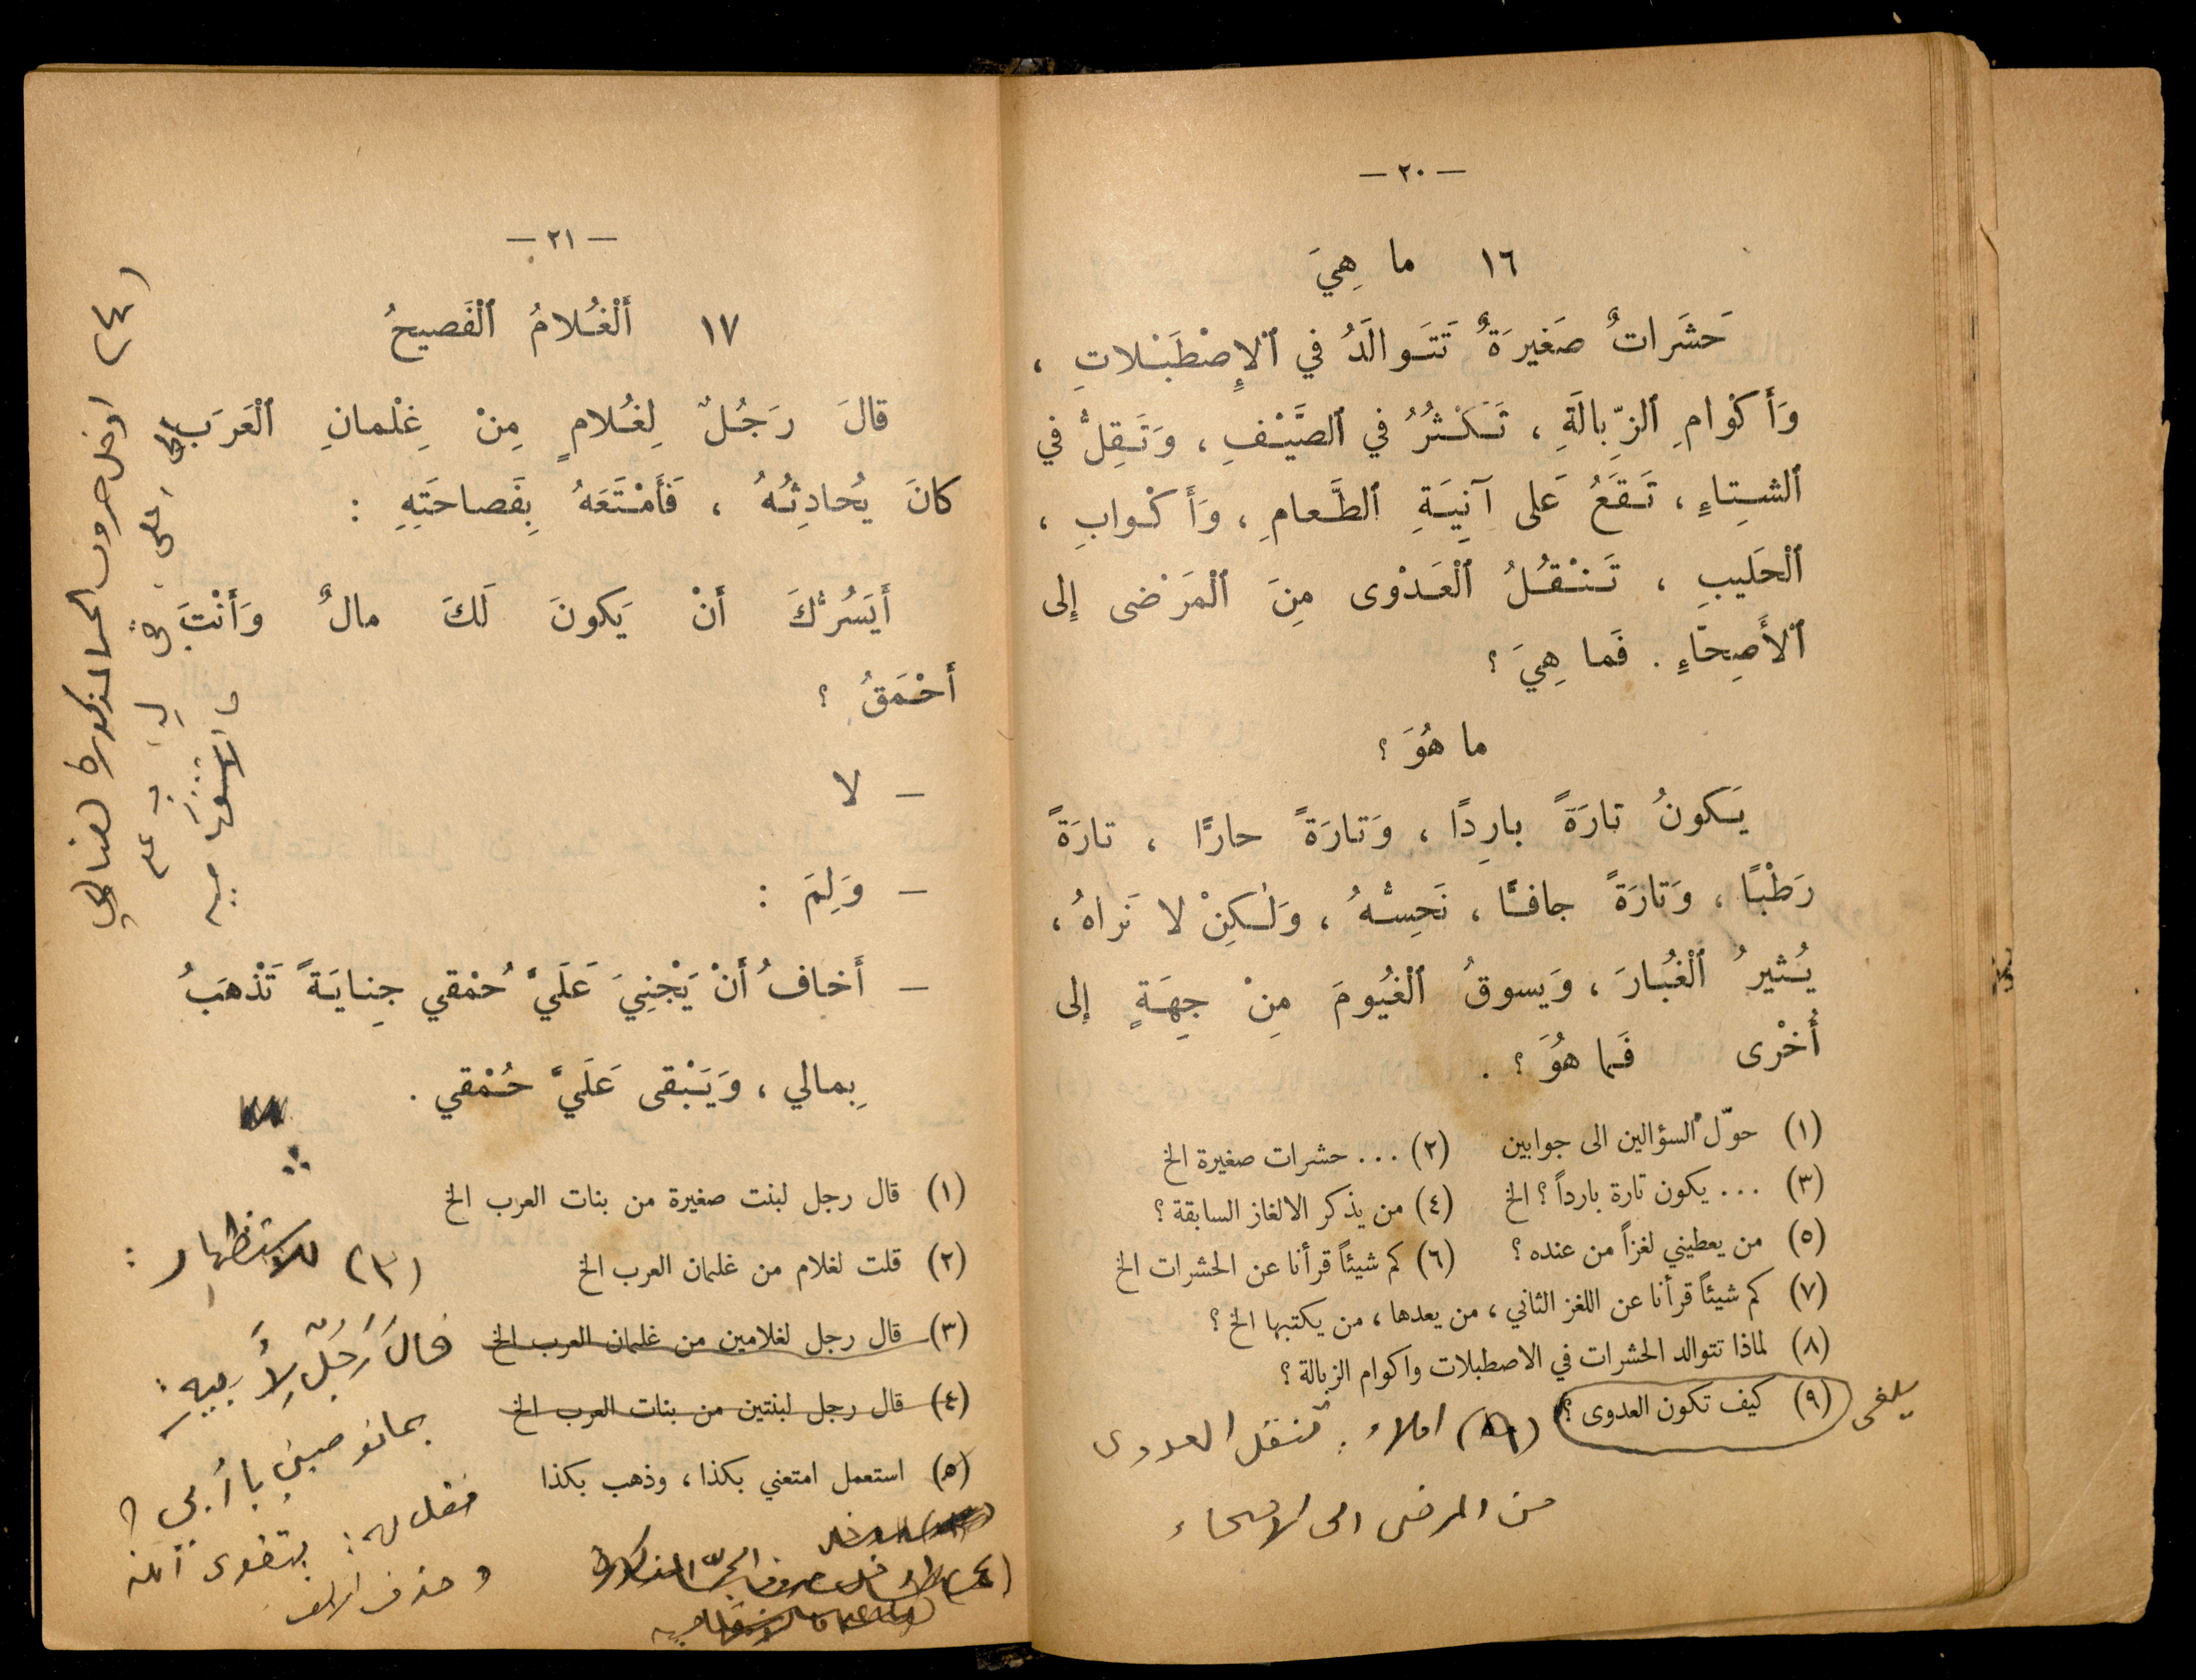 — ٢٠ —
١٦ ما هِيَ
حَشَراتٌ صَغيرَةٌ تَتَوالَدُ في ٱلْإِصْطَبْلاتِ ،
وَأَكْوامِ ٱلزِّبالَةِ ، تَكْثُرُ في ٱلصَّيْفِ ، وَتَقِلُّ في
ٱلشِتاءِ ، تَقَعُ عَلى آنِيَةِ ٱلطَّعامِ ، وَأَكْوابِ ،
ٱلْحَليبِ ، تَنْقُلُ ٱلْعَدْوى مِنَ ٱلْمَرْضى إلى
ٱلأَصِحّاءِ . فَما هِيَ ؟
ما هُوَ ؟
يَكونُ تارَةً بارِدًا ، وَتارَةً حارًّا ، تارَةً
رَطْبًا ، وَتارَةً جافًّا ، نَحِسُّهُ ، وَلٰكِنْ لا نَراهُ ،
يُثيرُ ٱلْغُبارَ ، وَيَسوقُ ٱلْغُيُومَ مِنْ جِهَةٍ إلى
أُخْرى فَما هُوَ ؟ .
(١) حوّل السؤالين الى جوابين (٢) ... حشرات صغيرة الخ
(٣) ... يكون تارة بارداً ؟ الخ (٤) من يذكر الالغاز السابقة ؟
(٥) من يعطيني لغزاً من عنده ؟ (٦) كم شيئاً قرأنا عن الحشرات الخ
(٧) كم شيئاً قرأنا عن اللغز الثاني ، من يعدها ، من يكتبها الخ ؟
(٨) لماذا تتوالد الحشرات في الاصطبلات واكوام الزبالة ؟
يلغى (٩) كيف تكون العدوى ؟ املاء : تنقل العدوى
من المرضى الى الاصحاء
— ٢١ —
١٧ أَلْغُلامُ ٱلْفَصيحُ
قالَ رَجُلٌ لِغُلامٍ مِنْ غِلْمانِ ٱلْعَرَبِ
كانَ يُحادِثُهُ ، فَأَمْتَعَهُ بِفَصاحَتِهِ :
أَيَسُرُّكَ أَنْ يَكونَ لَكَ مالٌ وَأَنْتَ
أَحْمَقُ ؟
— لا
— وَلِمَ :
— أَخافُ أَنْ يَجْنِيَ عَلَيَّ حُمْقي جِنايَةً تَذْهَبُ
بِمالي ، وَيَبْقى عَلَيَّ حُمْقي .
(١) قال رجل لبنت صغيرة من بنات العرب الخ
(٢) قلت لغلام من غلمان العرب الخ
(٣) قال رجل لغلامين من غلمان العرب الخ
(٤) قال رجل لبنتين من بنات العرب الخ
(٥) استعمل امتعني بكذا ، وذهب بكذا
(٣) للاستظهار :
قالَ رَجُلٌ لِأَبيهِ :
بماتوصيني يا أبي ؟
فقال له : بتقوى الله
وحذف الالف
(٤) ادخل حروف الجر المذكورة
على